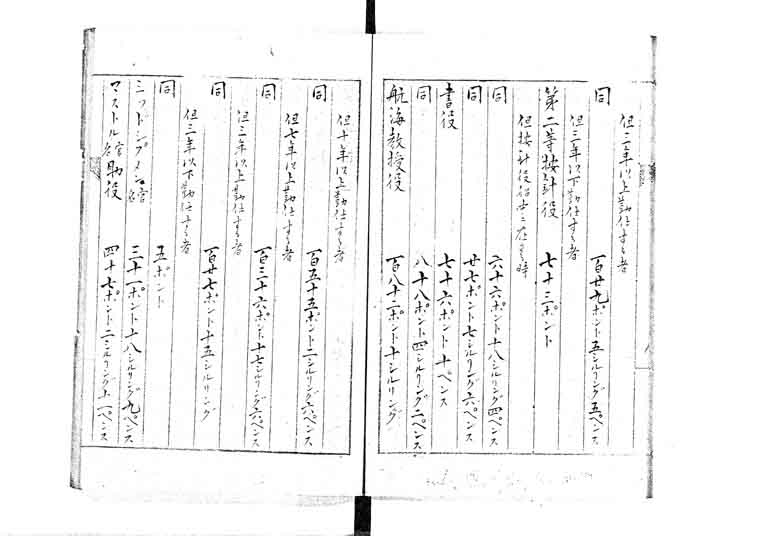 但二年以上勤仕する者
同　百廿九ポント五シルリング五ペンス
但三年以下勤仕する者
第二等按針役　七十三ポント
但按針役船中ニ在る時
同　六十六ポント十八シルリング四ペンス
同　廿七ポント七シルリング六ペンス
書役　七十六ポント十ペンス
同　八十八ポント四シルリング二ペンス
航海教授役　百八十二ポント十シルリング
但十年以上勤仕する者
同　百五十五ポント二シルリング六ペンス
但七年以上勤仕する者
同　百三十六ポント十七シルリング六ペンス
但三年以上勤仕する者
同　百廿七ポント十五シルリング
但三年以下勤仕する者
同　五ポント
ミットシプメン官名　三十一ポント十八シルリング九ペンス
マストル官名助役　四十七ポント二シルリング十一ペンス